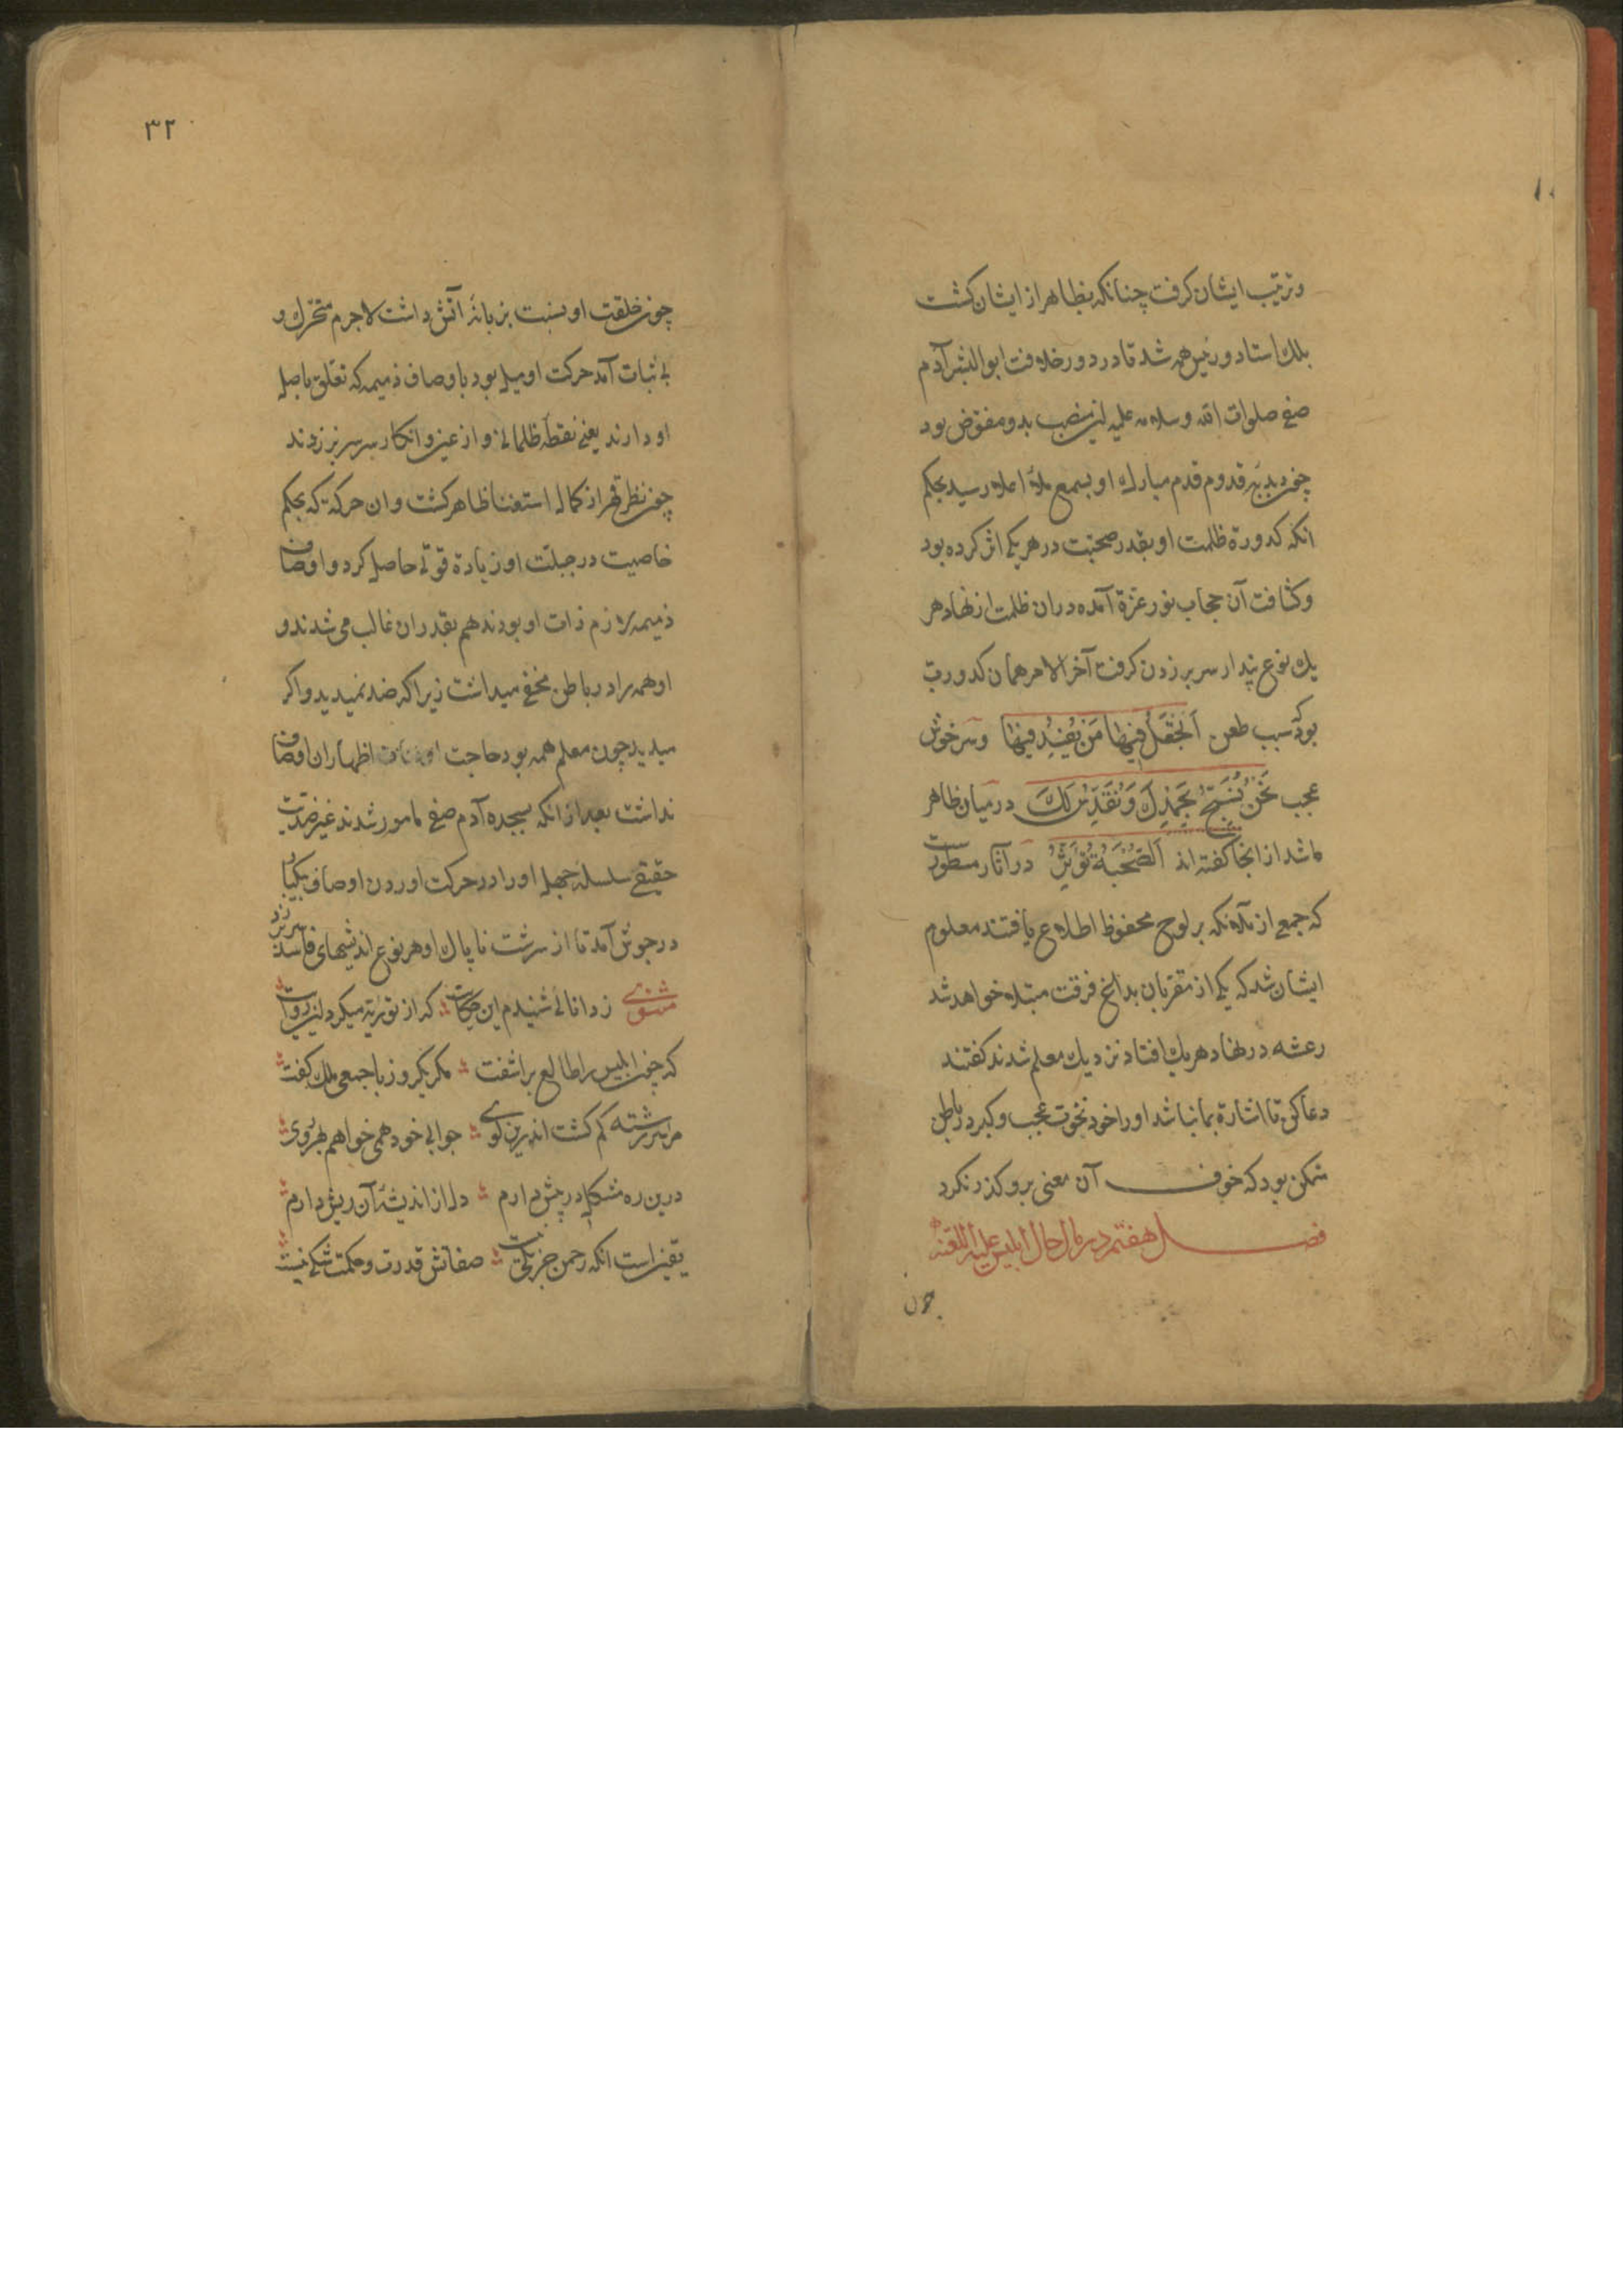 وترتیب ایشان کرفت چنانکه بظاهر از ایشان کشت
بلك استاد و رئیس همه شد تا در دور خلافت ابو البشر آدم
صفی صلوات الله وسلامه علیه این منصب بدو مفوّض بود
چون بدبۀ قدوم قدم مبارك او بسمع ملأ اعلا رسید بحکم
انکه کدورة ظلمت او بقدر صحبت در هر یکی اثر کرده بود
وکثافت آن حجاب نور عزة آمده دران ظلمت از نهاد هر
یك نوع پندار سر بر زدن کرفت آخر الامر همان کدورت
بود که سبب طعن اَتَجْعَلُ فِیهَا مَنْ یُفْسِدُ فِیهَا وسرخوش
عجب نَحْنُ نُسَبِّحُ بِحَمْدِكَ وَنُقَدِّسُ لَكَ در میان ظاهر
ماشد از انجا کفته اند اَلصُّحْبَةُ تُؤَثِّرُ در آثار مسطورست
که جمعی از ملائکه بر لوح محفوظ اطلاع یافتند معلوم
ایشان شد که یکی از مقربان بداغ فرقت مبتلا خواهد شد
رعشه در نهاد هر یك افتاد نزدیك معلم شدند کفتند
دعا کن تا اشارة بما نباشد او را خود نخوت عجب و کبر در باطن
متمکن بود که خوف آن معنی برو کذر نکرد
فصل هفتم در مآل حال ابلیس علیه اللعنه
چون
۳۲
چون خلقت او نسبت بزبانۀ آتش داشت لاجرم متحرّك و
بی ثبات آمد حرکت او میلی بود باوصاف ذمیمه که تعلّق باصل
او دارند یعنی نقطۀ ظلمانی و از عین و انکار سر بر زدند
چون نظر قهر از کمال استغنا ظاهر کشت و ان حرکة که بحکم
خاصیت در جبلّت او زیادة قوّتی حاصل کرد و اوصاف
ذمیمه لازم ذات او بودند هم بقدر ان غالب می شدند و
او همه را در باطن مخفی میداشت زیرا که ضد نمیدید و اکر
میدید چون معلم همه بود حاجت اظهار ان اوصاف
نداشت بعد از انکه بسجده آدم صفی مامور شدند غیر ضدّیت
حقیقی سلسلۀ جهل او را در حرکت اورد ان اوصاف بیکبار
در جوش آمد تا از سرشت ناپاك او هر نوع اندیشهای فاسد سر بر زد
مثنوی زدانائی شنیدم این حکایت که از توریة میکرد این روایت
که چون ابلیس را طالع براشفت مکر یکروز با جمعی ملك کفت
مرا سررشته کم کشت اندرین کوی جوابی خود همی خواهم بهر روی
درین ره مشکلی در پیش دارم دل از اندیشۀ آن ریش دارم
یقین است انکه رحمن جز یکی نیست صفاتش قدرت و حکمت شکی نیست